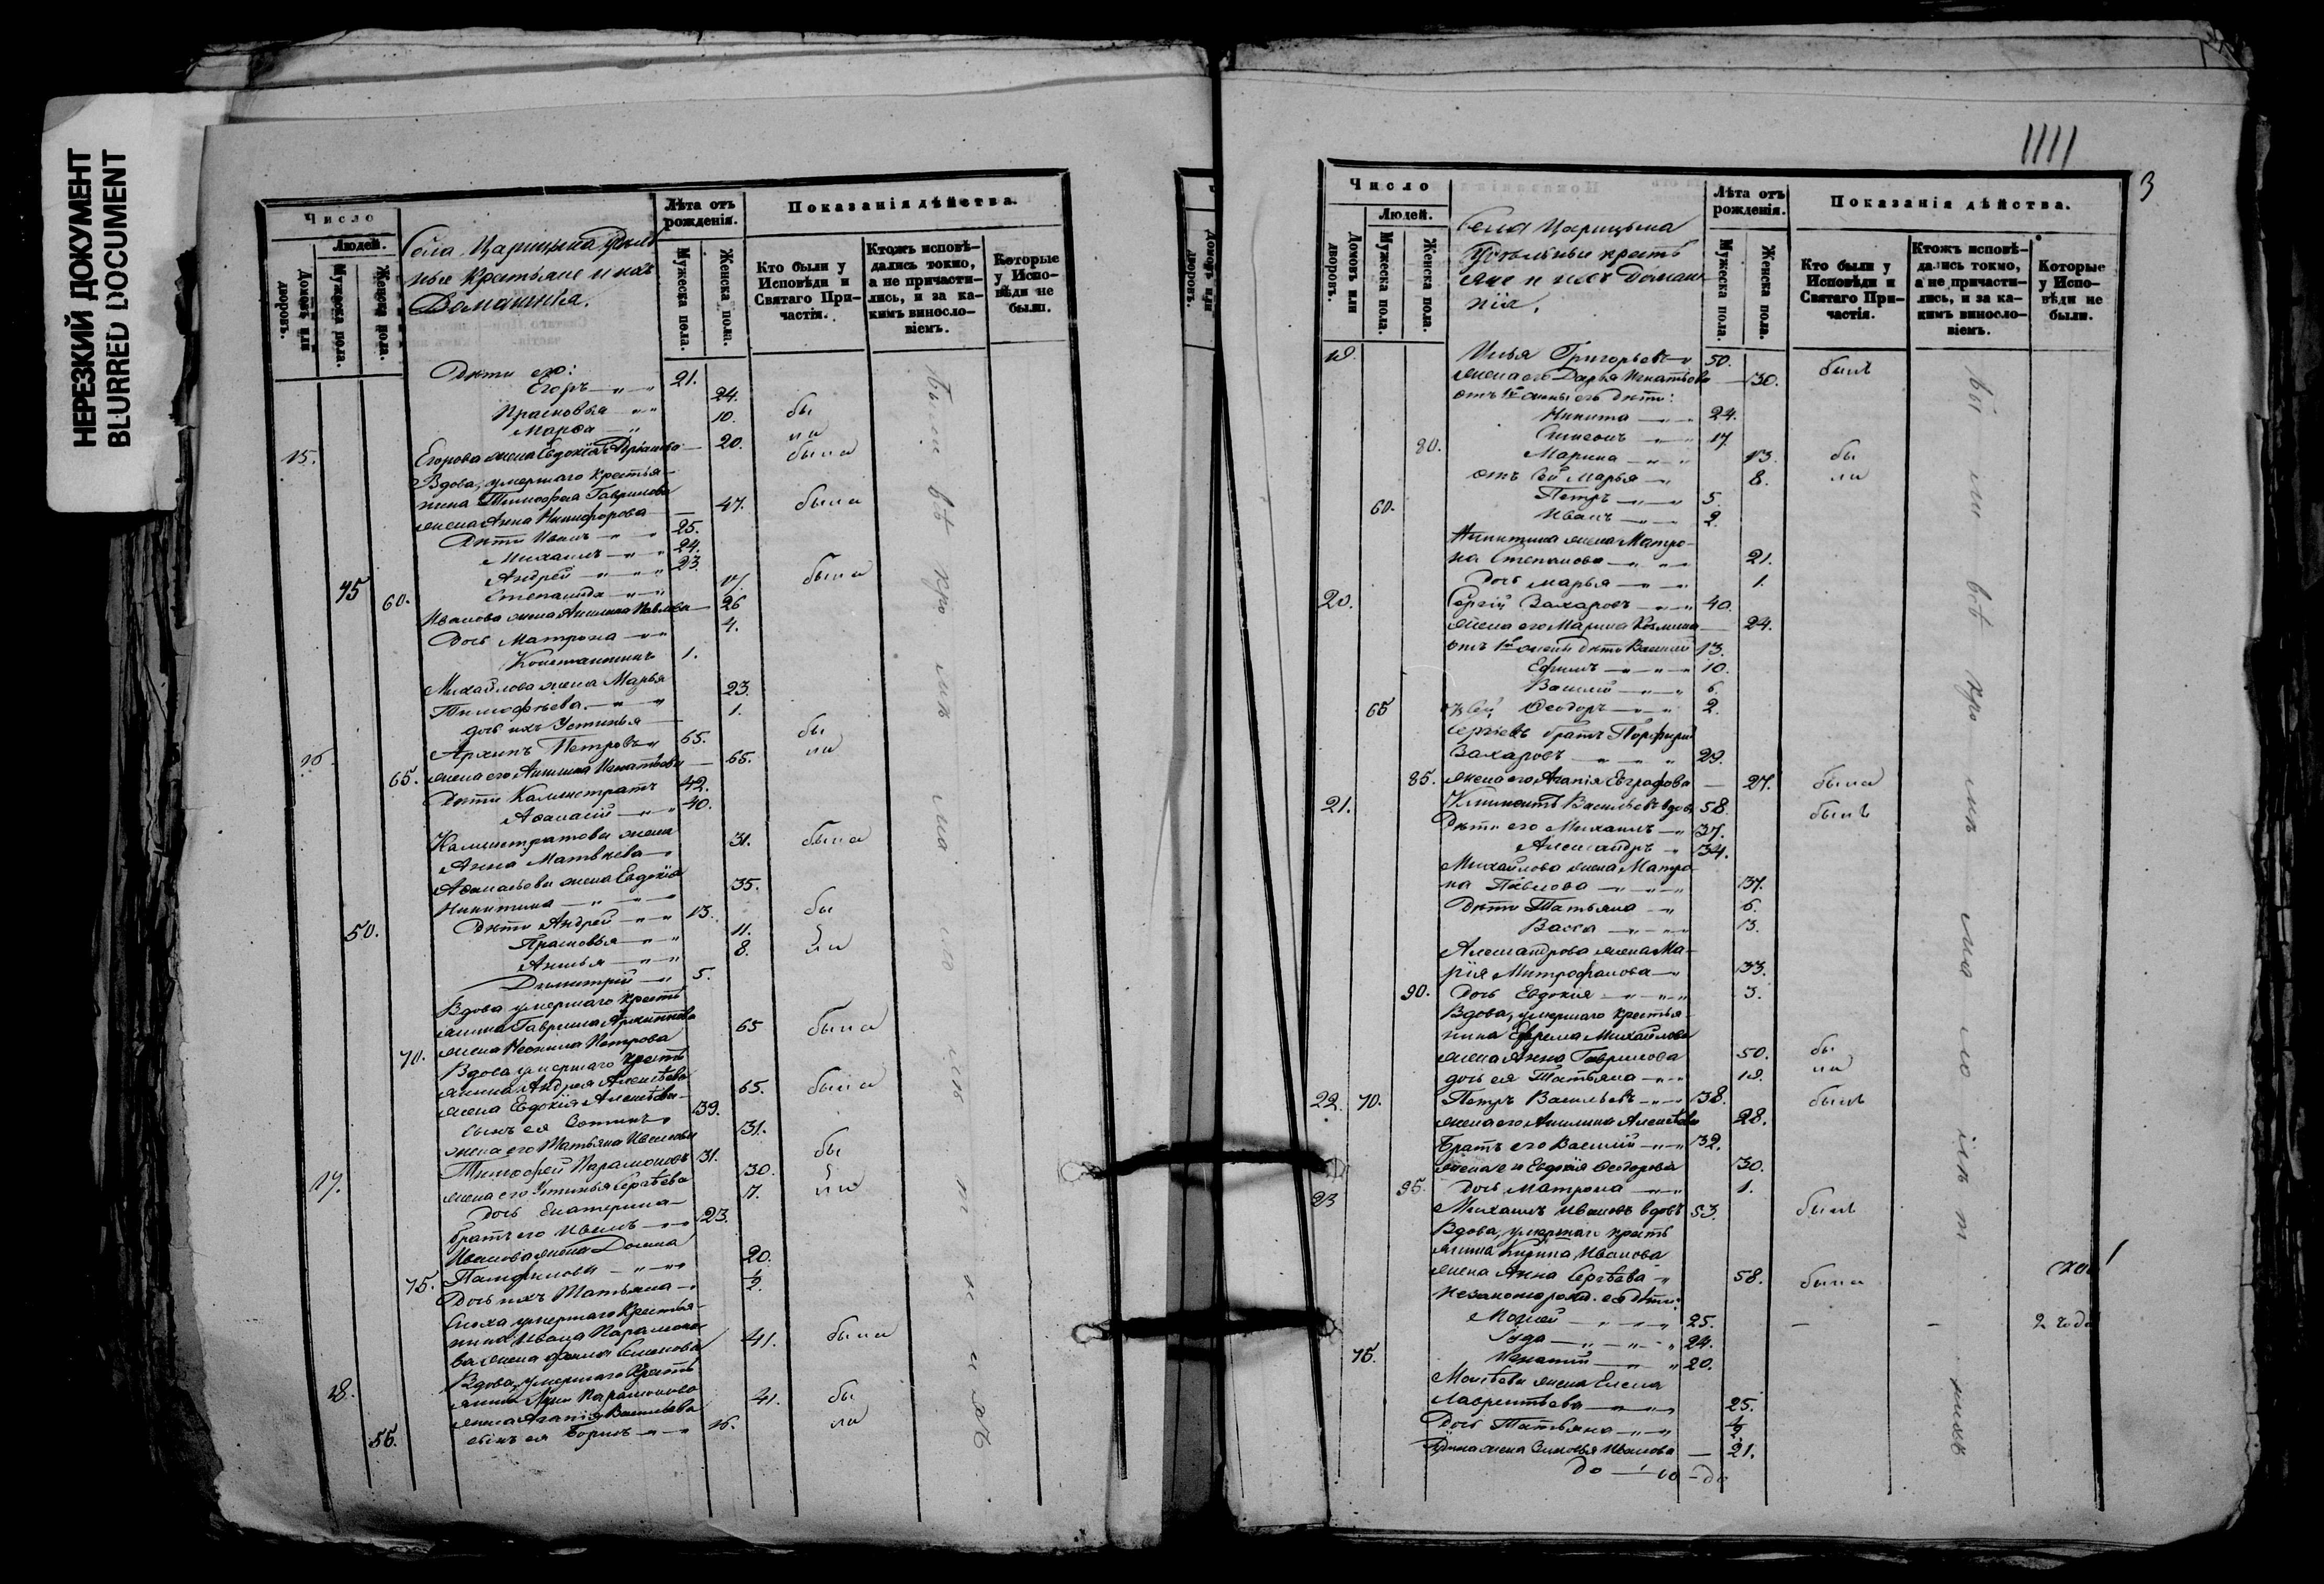 НЕРЕЗКИЙ ДОКУМЕНТ
BLURRED DOCUMENT
Число
Людей.
Домовъ или дворовъ.
Мужеска пола.
Женска пола.
Села Царицына Удѣль
ные Крестьяне и ихъ
Домашнія.
Лѣта отъ рожденія.
Мужеска пола.
Женска пола.
Показанія дѣйства.
Кто были у Исповѣди и Святаго Причастія.
Ктожъ исповѣдались токмо, а не причастились, и за какимъ винословіемъ.
Которые у Исповѣди не были.
Дѣти его:
Егоръ 21.
Прасковья 24. бы
Марѳа 10. ли
Егорова жена Евдокія 20. была
15. Вдова, умершаго крестья-
нина Тимофея Гаврилова
жена Анна Никифорова 47. была
Дѣти Иванъ 25.
Михаилъ 24.
45 Андрей 23.
60. Степанида 17. была
Иванова жена Акилина Павлова 26
Дочь Матрона 4.
Константинъ 1.
Михайлова жена Марья
Тимофѣева 23.
дочь ихъ Устинья 1.
16. Архипъ Петровъ 65. бы
65. жена его Акилина Игнатьева 65. ли
Дѣти Калистратъ 42.
Аѳанасій 40.
Калистратова жена
Анна Матвѣева 31. была
Аѳанасьева жена Евдокія
Никитина 35.
50. Дѣти Андрей 13. бы
Прасковья 11.
Акилья 8. ли
Димитрій 5.
Вдова умершаго кресть
янина Гаврила Архипова
70. жена Неонила Петрова 65 была
Вдова умершаго кресть
янина Андрея Алексѣева
жена Евдокія Алексѣева 65. была
сынъ ея 39.
жена его Татьяна Иванова 31.
17. Тимофей Парамоновъ 31. бы
жена его Устинья Сергѣева 30.
Дочь Екатерина 7. ли
братъ его Иванъ 23.
Иванова жена Домна
75. Памфилова 20.
Дочь ихъ Татьяна ½.
Сноха умершаго Крестья-
нина Ивана Парамоно-
ва жена Семенова 41. была
18. Вдова, умершаго Кресть
янина Луки Парамонова
жена Агапія Васильева 41. бы
55. сынъ ея Борисъ 16. ли
3
Число
Людей.
Домовъ или дворовъ.
Мужеска пола.
Женска пола.
Села Царицына
Удѣльные кресть
яне и ихъ домаш
нія.
Лѣта отъ рожденія.
Мужеска пола.
Женска пола.
Показанія дѣйства.
Кто были у Исповѣди и Святаго Причастія.
Ктожъ исповѣдались токмо, а не причастились, и за какимъ винословіемъ.
Которые у Исповѣди не были.
19. Илья Григорьевъ 50. былъ
жена его Дарья Игнатьева 30.
отъ 1й жены его дѣти:
Никита 24.
Симеонъ 17.
80. Марина 13. бы
отъ сей Марья 8. ли
Петръ 5.
60. Иванъ 2.
Никитина жена Матро-
на Степанова 21.
Дочь Марья 1.
20. Сергій Захаровъ 40.
жена его Марина Козмина 24.
отъ 1й жены дѣти Василій 13.
Ефимъ 10.
Василій 6.
65 отъ сей Ѳеодоръ 2.
Сергіевъ братъ Порфирій
Захаровъ 29.
85. жена его Агапія Евграфова 27. была
21. Климентъ Васильевъ вдовъ 58. былъ
Дѣти его Михаилъ 37.
Александръ 34.
Михайлова жена Матро-
на Павлова 37.
Дѣти Татьяна 6.
Васса 3.
Александрова жена Ма-
рія Митрофанова 33.
90. Дочь Евдокія 3.
Вдова, умершаго крестья-
нина Ефрема Михайлова
жена Анна Гаврилова 50. бы
дочь ея Татьяна 19. ла
22. 70. Петръ Васильевъ 38. былъ
жена его Акилина Алексѣева 28.
Братъ его Василій 32.
жена его Евдокія Ѳеодорова 30.
95. Дочь Матрона 1.
23 Михаилъ Ивановъ вдовъ 53. былъ
Вдова, умершаго кресть
янина Кирила Иванова
жена Анна Сергѣева 58. была
Незаконорожд. ея дѣти:
Моисей 25. 2 года
Іуда 24.
75. Игнатій 20.
Моисѣева жена Елена
Лаврентьева 25.
Дочь Татьяна ½.
Іудина жена Соловья Иванова 21.